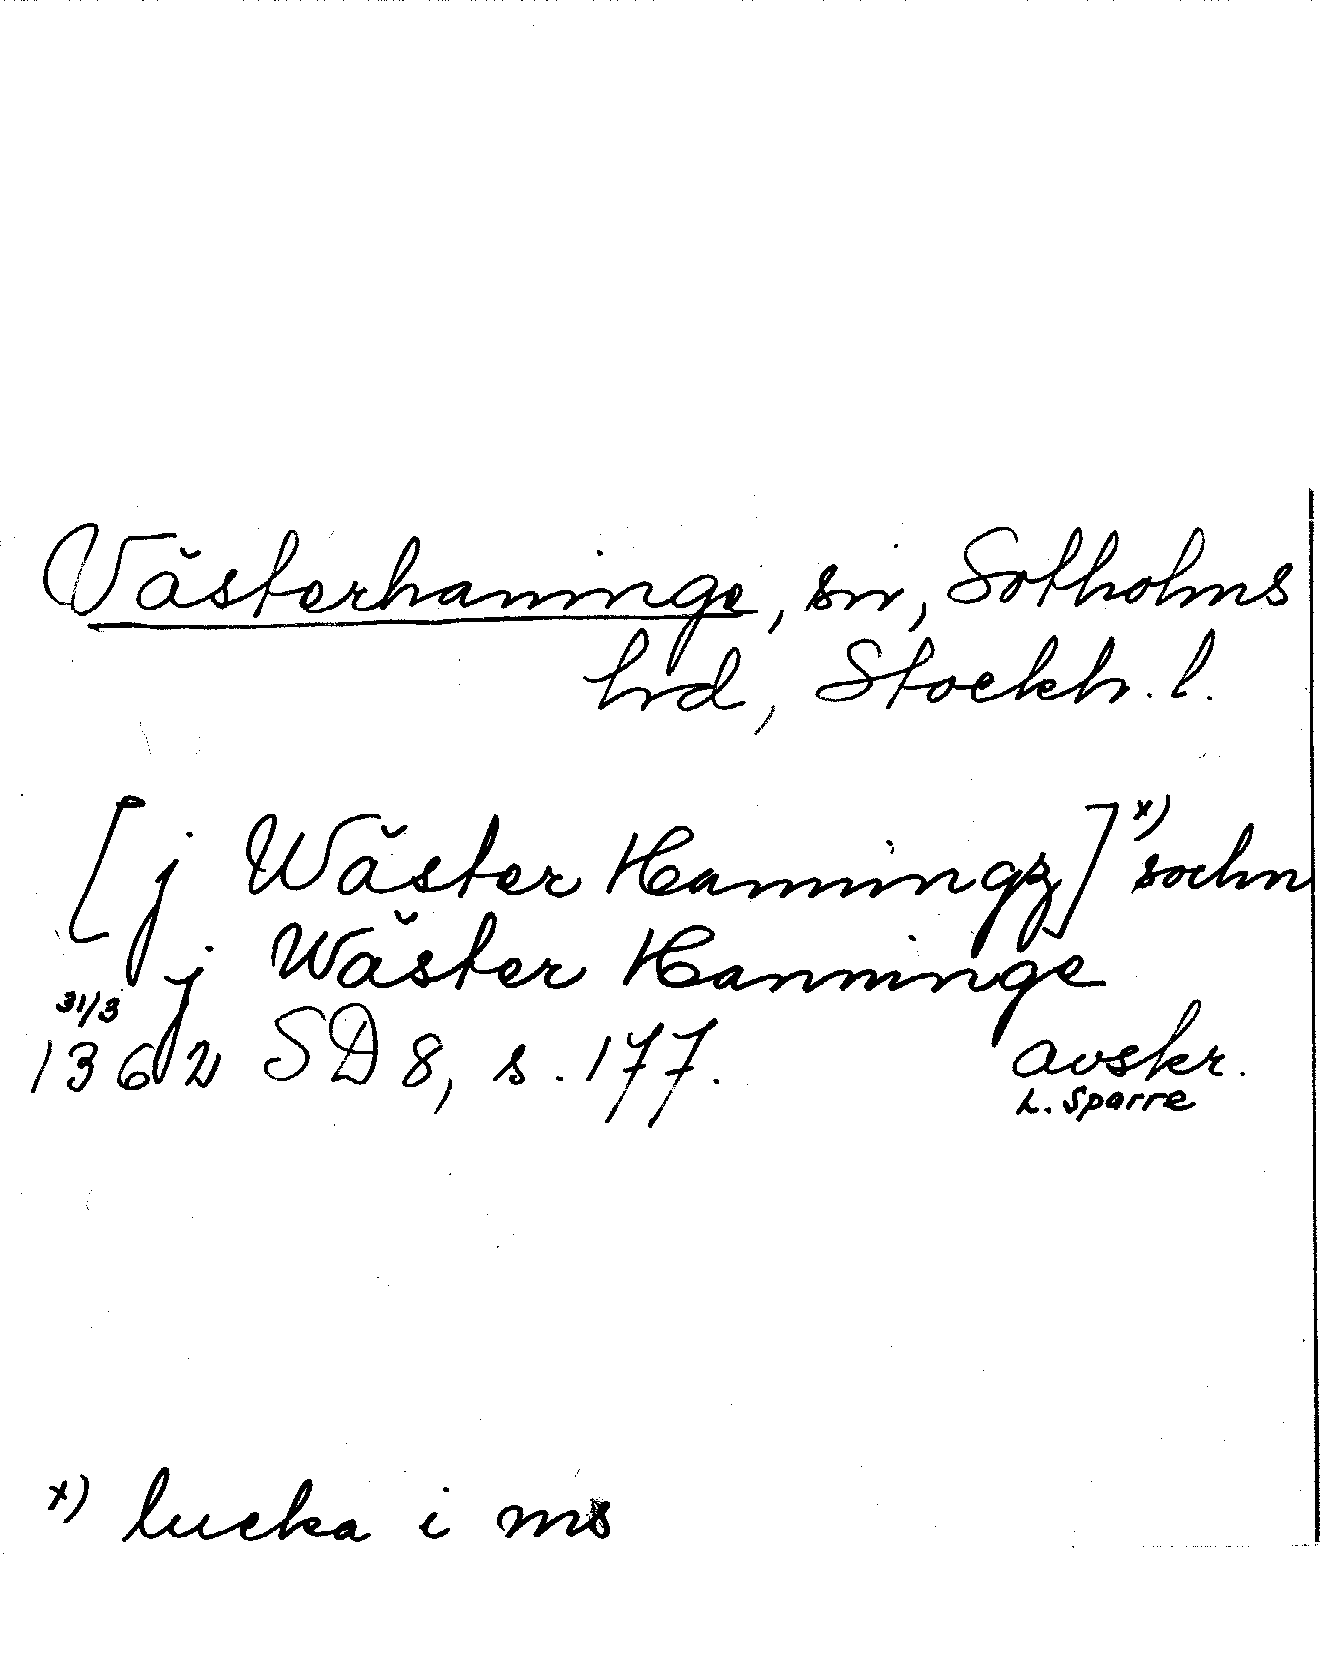 Västerhaninge, sn, Sotholms
hd, Stockh. l.
[j Wäster Hanningz] x) sochn
j Wäster Hanninge
31/3
1362 SD 8, s. 177. avskr.
L. Sparre
x) lucka i ms